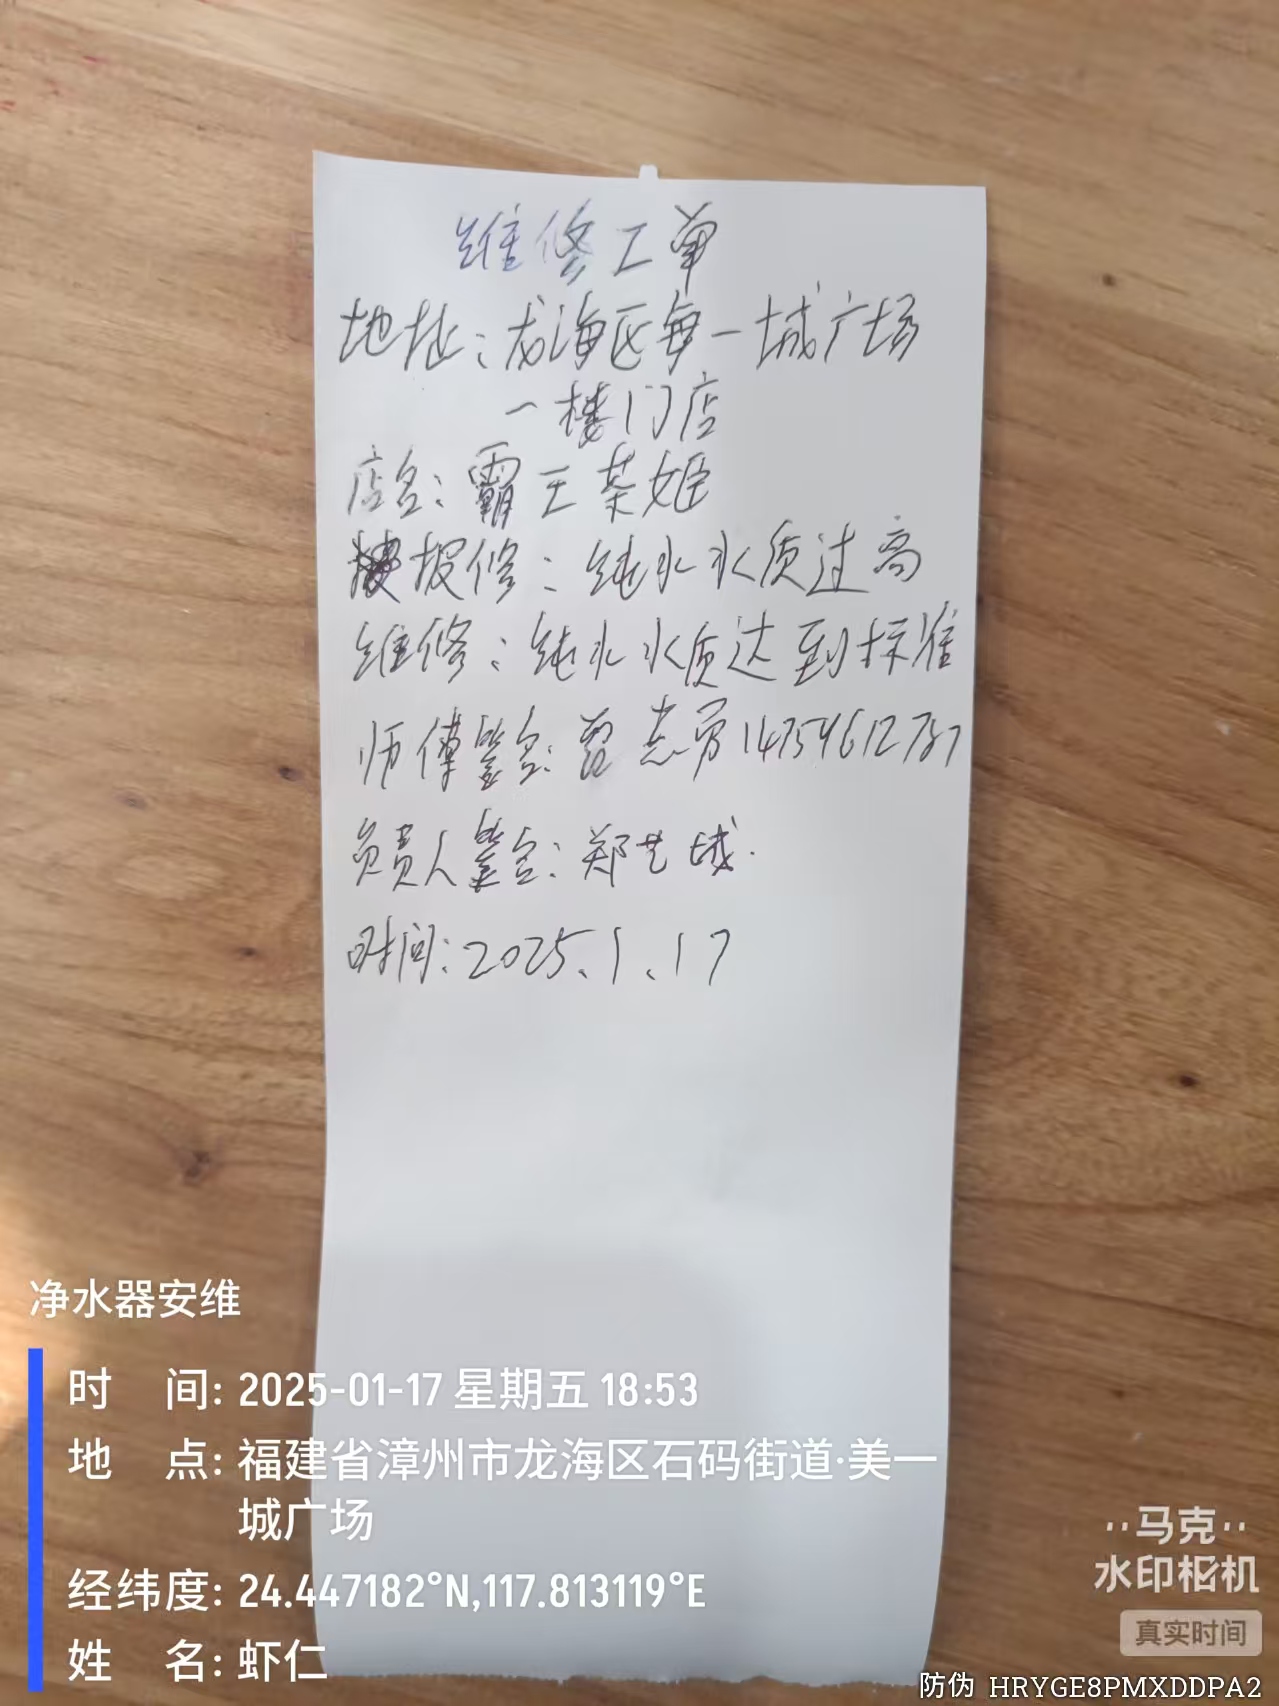 维修工单
地址:龙海区每一城广场
一楼门店
店名:霸王茶姬
报修:纯水水质过高
维修:纯水水质达到标准
师傅鉴名: 志勇
负责人鉴名:郑艺城.
时间:2025.1.17
净水器安维
时 间:2025-01-17 星期五 18:53
地 点:福建省漳州市龙海区石码街道·美一
城广场
经纬度:24.447182°N,117.813119°E
姓 名:虾仁
马克
水印相机
真实时间
防伪 HRYGE8PMXDDPA2